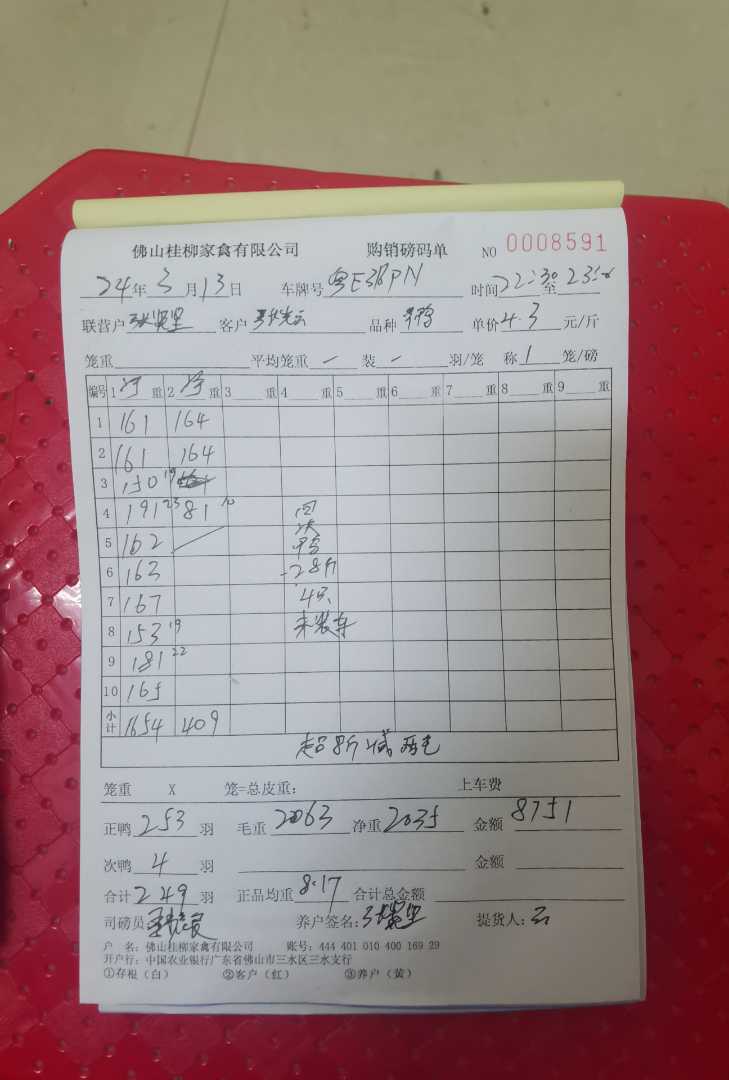 佛山桂柳家禽有限公司 购销磅码单 NO 0008591
24年3月13日 车牌号粤E3 PN 时间22:30至23
联营户 客户 品种 单价4.3元/斤
笼重 平均笼重 — 装 — 羽/笼 称1笼/磅
编号 1 净重 2 净重 3 重 4 重 5 重 6 重 7 重 8 重 9 重
1 161 164
2 161 164
3 150 19
4 191 23 81 10 回
5 162 次
6 163 -28斤
7 167 4只
8 153 19 未装车
9 181 22
10 165
小计 1654 409
超8斤减两毛
笼重 X 笼=总皮重: 上车费
正鸭253羽 毛重2063 净重2035 金额8751
次鸭4羽 金额
合计249羽 正品均重8.17 合计总金额
司磅员 养户签名: 提货人:云
户 名: 佛山桂柳家禽有限公司 账号: 444 401 010 400 169 29
开户行: 中国农业银行广东省佛山市三水区三水支行
①存根(白) ②客户(红) ③养户(黄)